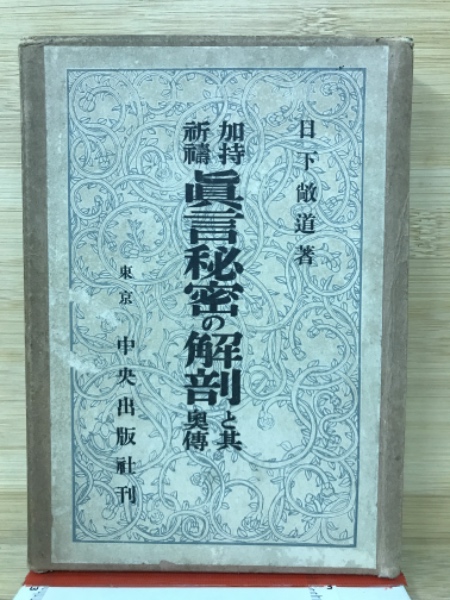 日下敞道著
加持
祈禱
眞言秘密の解剖
と其
奥傳
東京 中央出版社刊